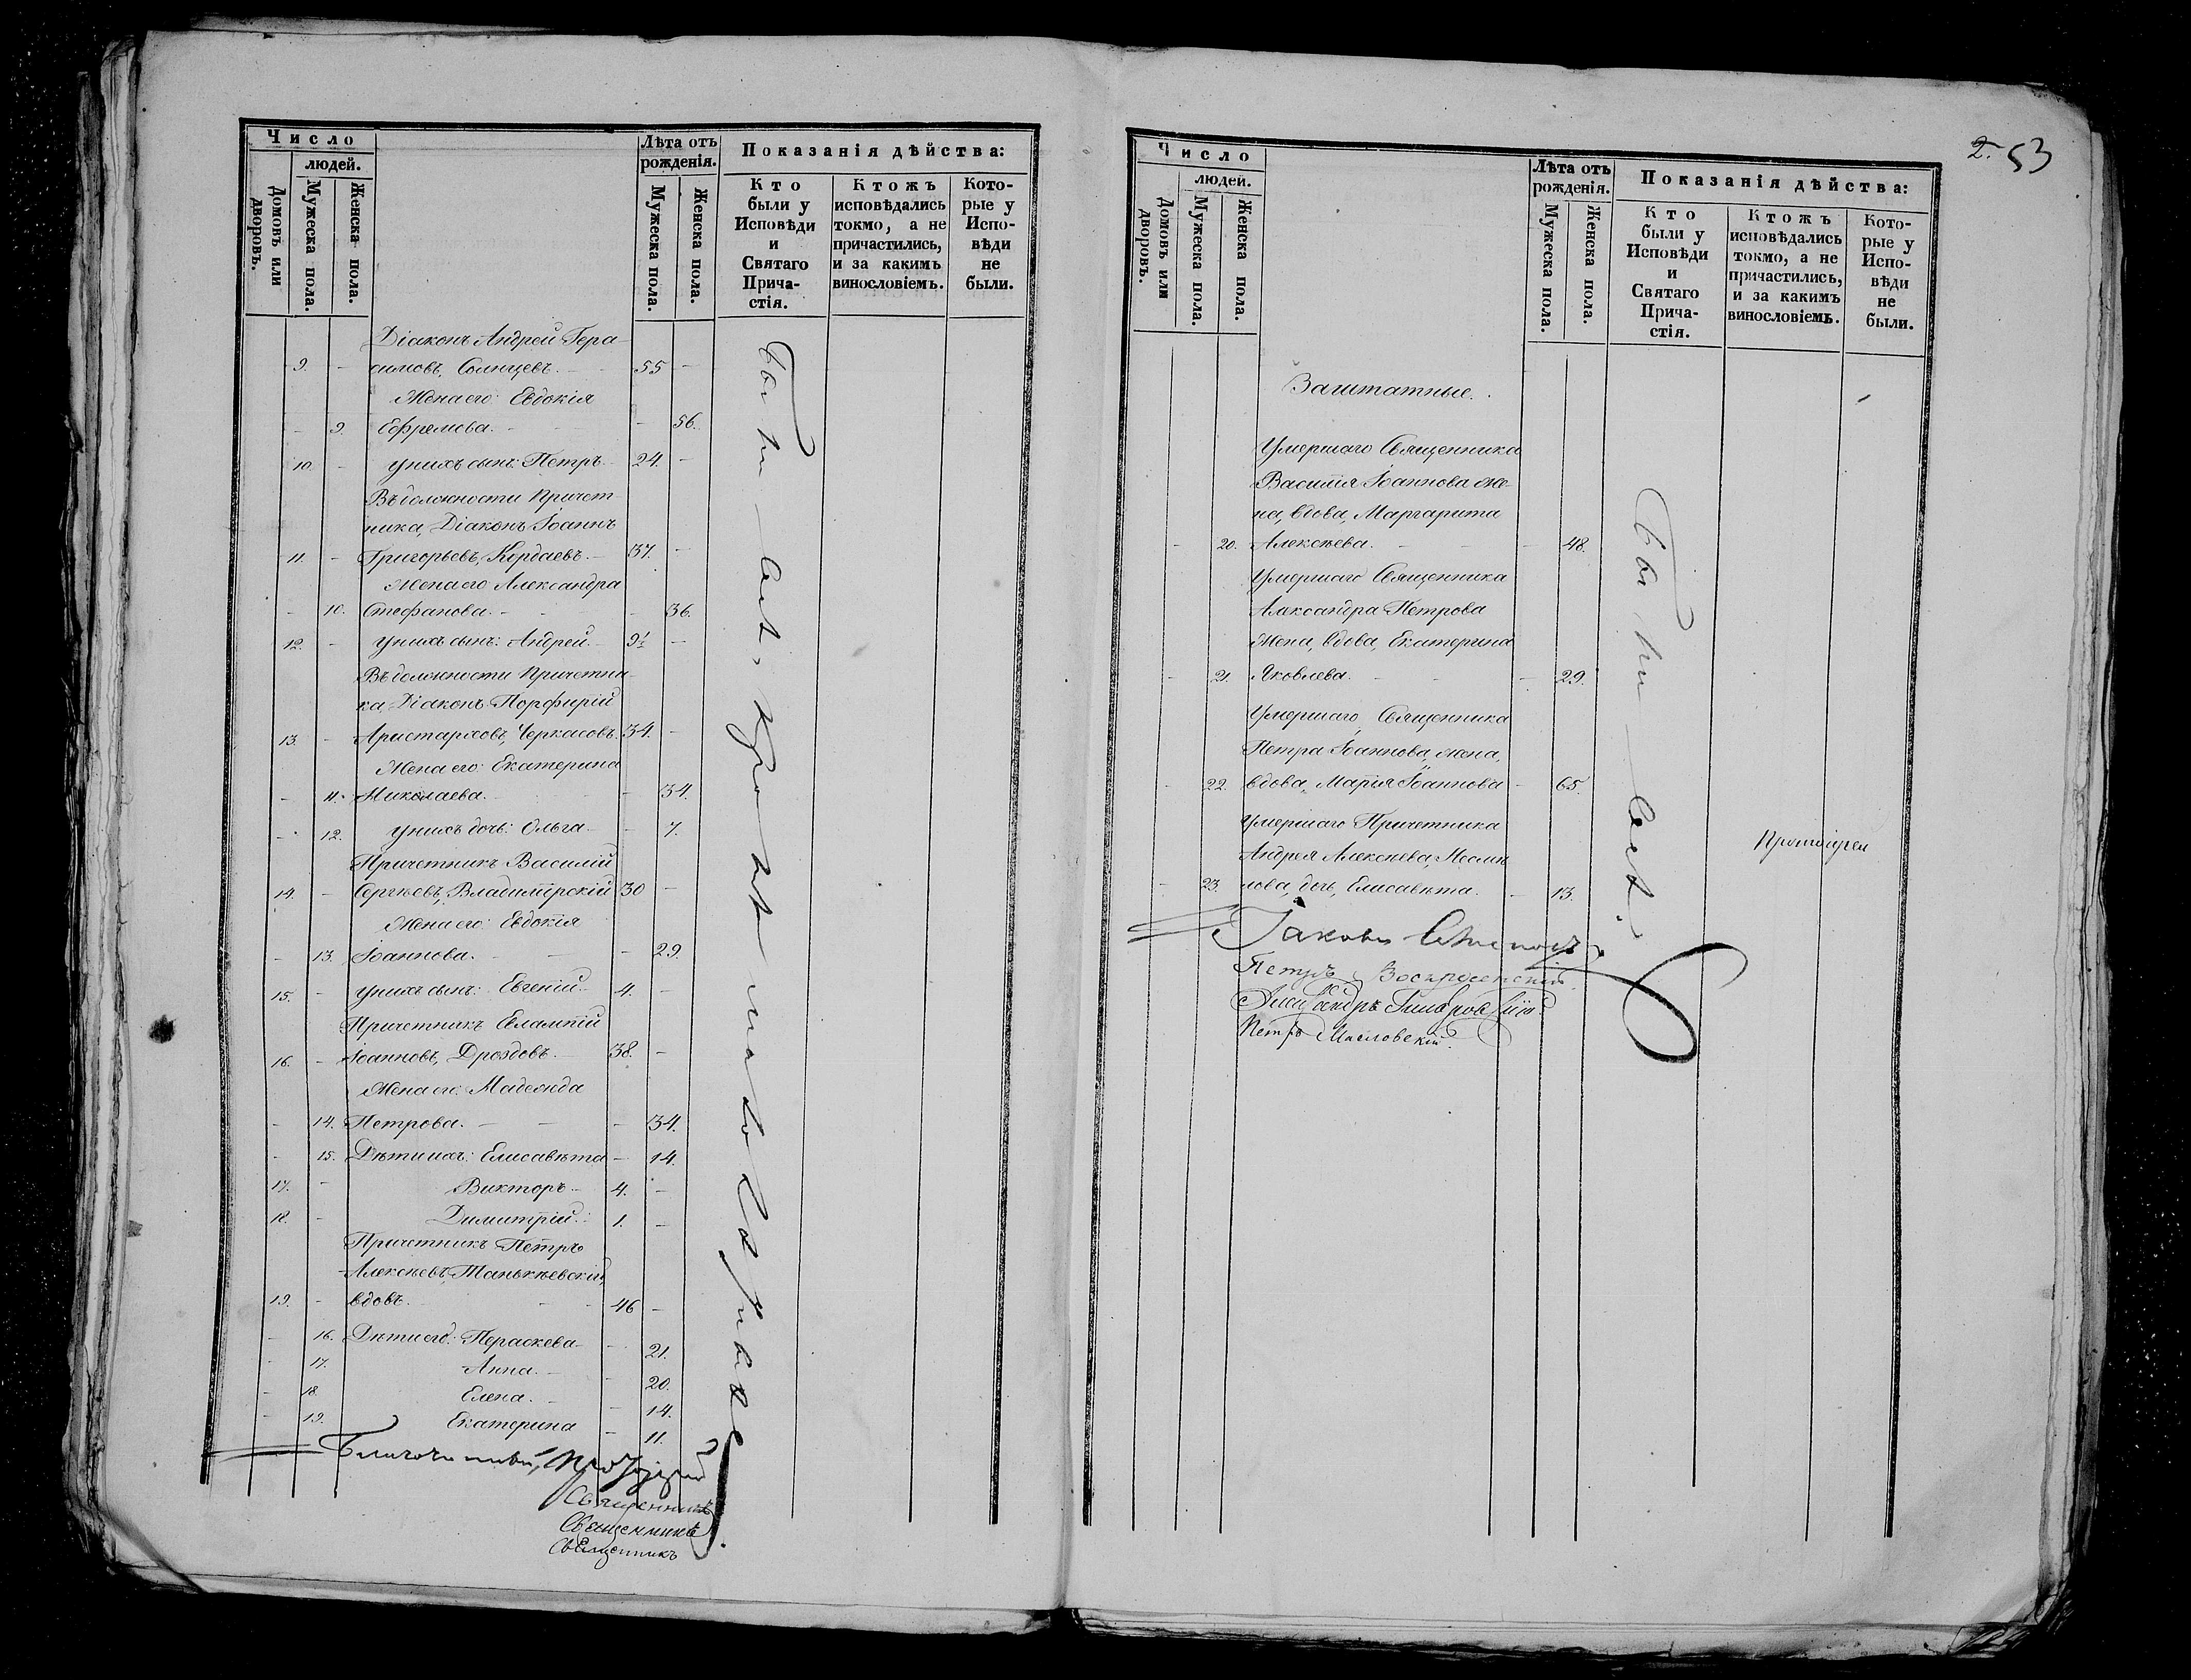 Число
людей.
Домовъ или дворовъ.
Мужеска пола.
Женска пола.
Лѣта отъ рожденія.
Мужеска пола.
Женска пола.
Показанія дѣйства:
Кто были у Исповѣди и Святаго Прича-стія.
Ктожъ исповѣдались токмо, а не причастились, и за какимъ винословіемъ.
Кото-рые у Испо-вѣди не были.
Діаконъ Андрей Гера-
9. - симовъ, Солнцевъ. - 55 -
Жена его: Евдокія
- 9. Ефремова. - - 56.
10. - у нихъ сынъ: Петръ 24. -
Въ должности Причет-
ника, Діаконъ Іоаннъ
11. - Григорьевъ, Кердаевъ. - 37. -
Жена его Александра
- 10. Стефанова. - - 36.
12. - у нихъ сынъ: Андрей. - 9½ -
Въ должности Причетни-
ка Діаконъ Порфирій
13. - Аристарховъ, Черкасовъ. 34. -
Жена его: Екатерина
- 11. Николаева. - 34.
- 12. у нихъ дочь: Ольга. - 7.
Причетникъ Василій
14. - Сергѣевъ, Владимірскій 30 -
Жена его: Евдокія
- 13. Іоаннова. - - 29.
15. - у нихъ сынъ: Евгеній. - 4. -
Причетникъ Евлампій
16. - Іоанновъ, Дроздовъ. - 38. -
Жена его: Надежда
- 14. Петрова. - - 34.
- 15. Дѣти ихъ: Елисавѣта - 14.
17. - Викторъ. - 4. -
18. - Димитрій. 1. -
Причетникъ Петръ
Алексѣевъ, Танькѣевскій,
19. - вдовъ. - 46 -
- 16. Дѣти его: Параскева - 21.
- 17. Анна. - 20.
- 18. Елена. - 14.
- 19. Екатерина - 11.
Благочинный, Протоіерей
Священникъ
Священникъ
Священникъ
2. 53
Число
людей.
Домовъ или дворовъ.
Мужеска пола.
Женска пола.
Лѣта отъ рожденія.
Мужеска пола.
Женска пола.
Показанія дѣйства:
Кто были у Исповѣди и Святаго Прича-стія.
Ктожъ исповѣдались токмо, а не причастились, и за какимъ винословіемъ.
Кото-рые у Испо-вѣди не были.
Заштатные.
Умершаго Священника
Василія Іоаннова же-
на, вдова, Маргарита
- 20. Алексѣева. - - 48.
Умершаго Священника
Александра Петрова
Жена, вдова, Екатерина
- 21. Яковлева. - - 29.
Умершаго Священника
Петра Іоаннова, жена,
- 22. вдова, Марія Іоаннова - 65.
Умершаго Причетника
Андрея Алексѣева,
- 23. лова, дочь, Елисавѣта. - 13.
Іаковъ
Петръ Воскресенскій
Александръ
Петръ Масловскій.